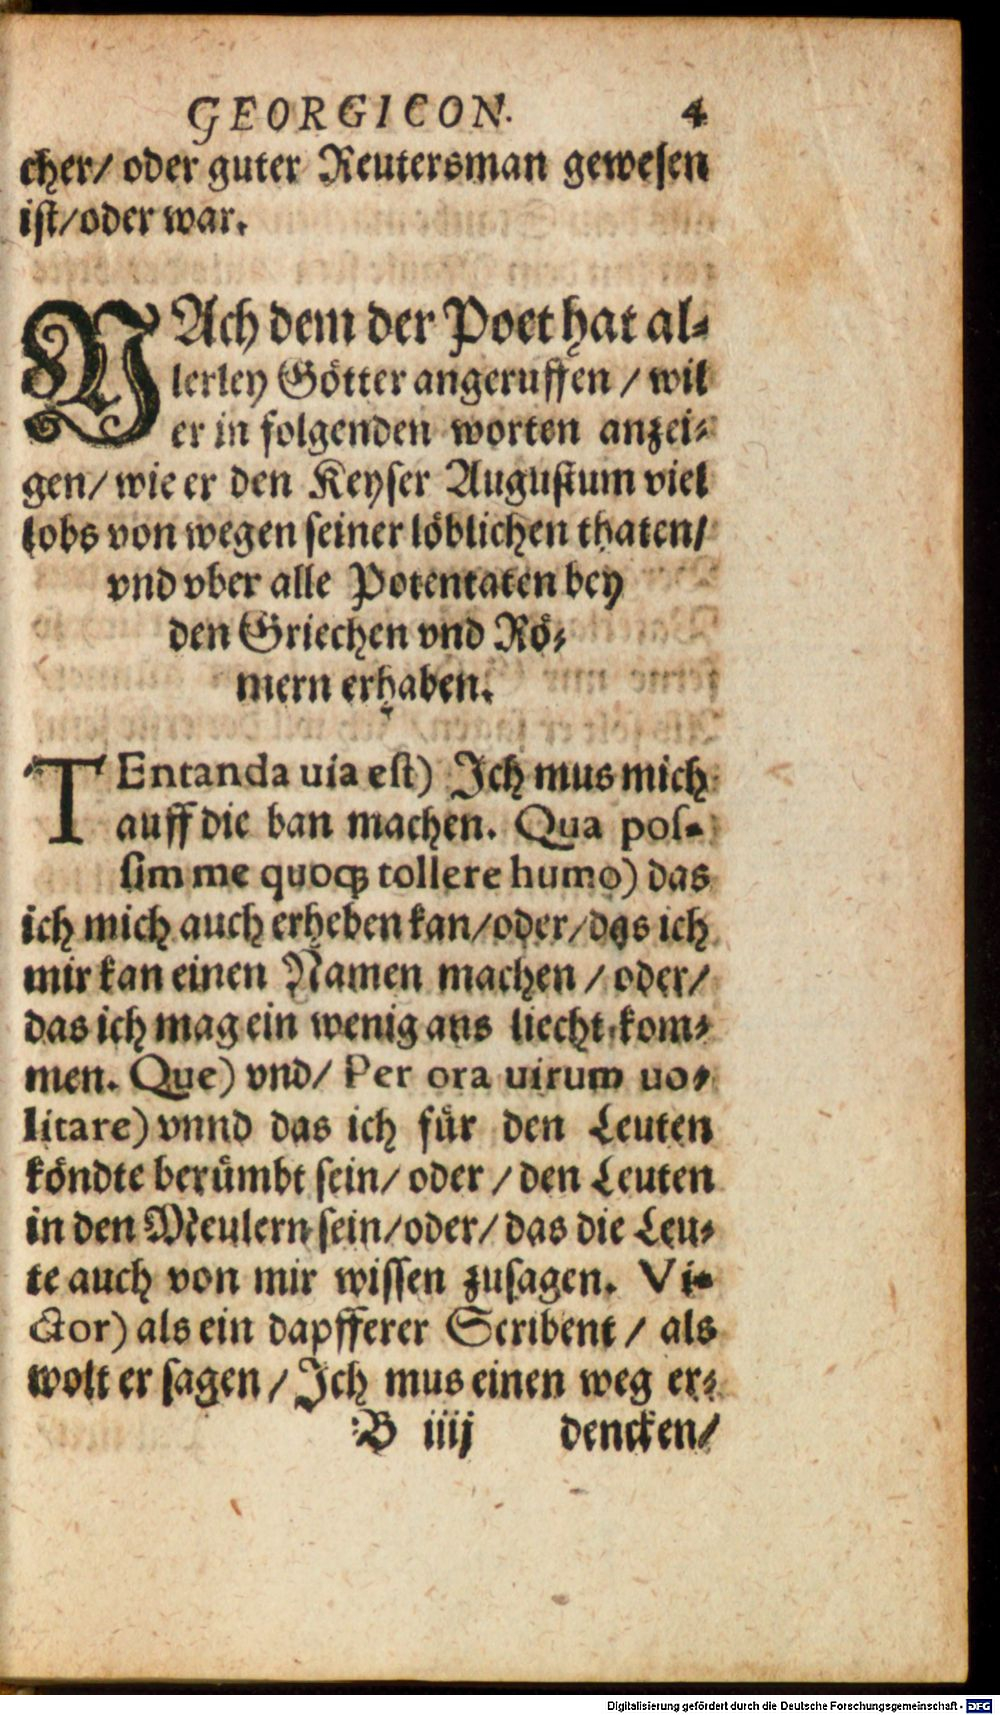 GEORGICON. 4
cher/ oder guter Reutersman gewesen
ist/oder war.
NAch dem der Poet hat al⸗
lerley Götter angeruffen / wil
er in folgenden worten anzei⸗
gen/ wie er den Keyser Augustum viel
lobs von wegen seiner löblichen thaten/
vnd vber alle Potentaten bey
den Griechen vnd Rö⸗
mern erhaben.
TEntanda uia est) Ich mus mich
auff die ban machen. Qua pos-
sim me quoq; tollere humo) das
ich mich auch erheben kan/oder/das ich
mir kan einen Namen machen / oder/
das ich mag ein wenig ans liecht kom⸗
men. Que) vnd/ Per ora uirum uo⸗
litare) vnnd das ich für den Leuten
köndte berümbt sein/ oder / den Leuten
in den Meulern sein/oder/ das die Leu⸗
te auch von mir wissen zusagen. Vi-
ctor) als ein dapfferer Scribent / als
wolt er sagen / Ich mus einen weg er⸗
B iiij dencken/
Digitalisierung gefördert durch die Deutsche Forschungsgemeinschaft - DFG